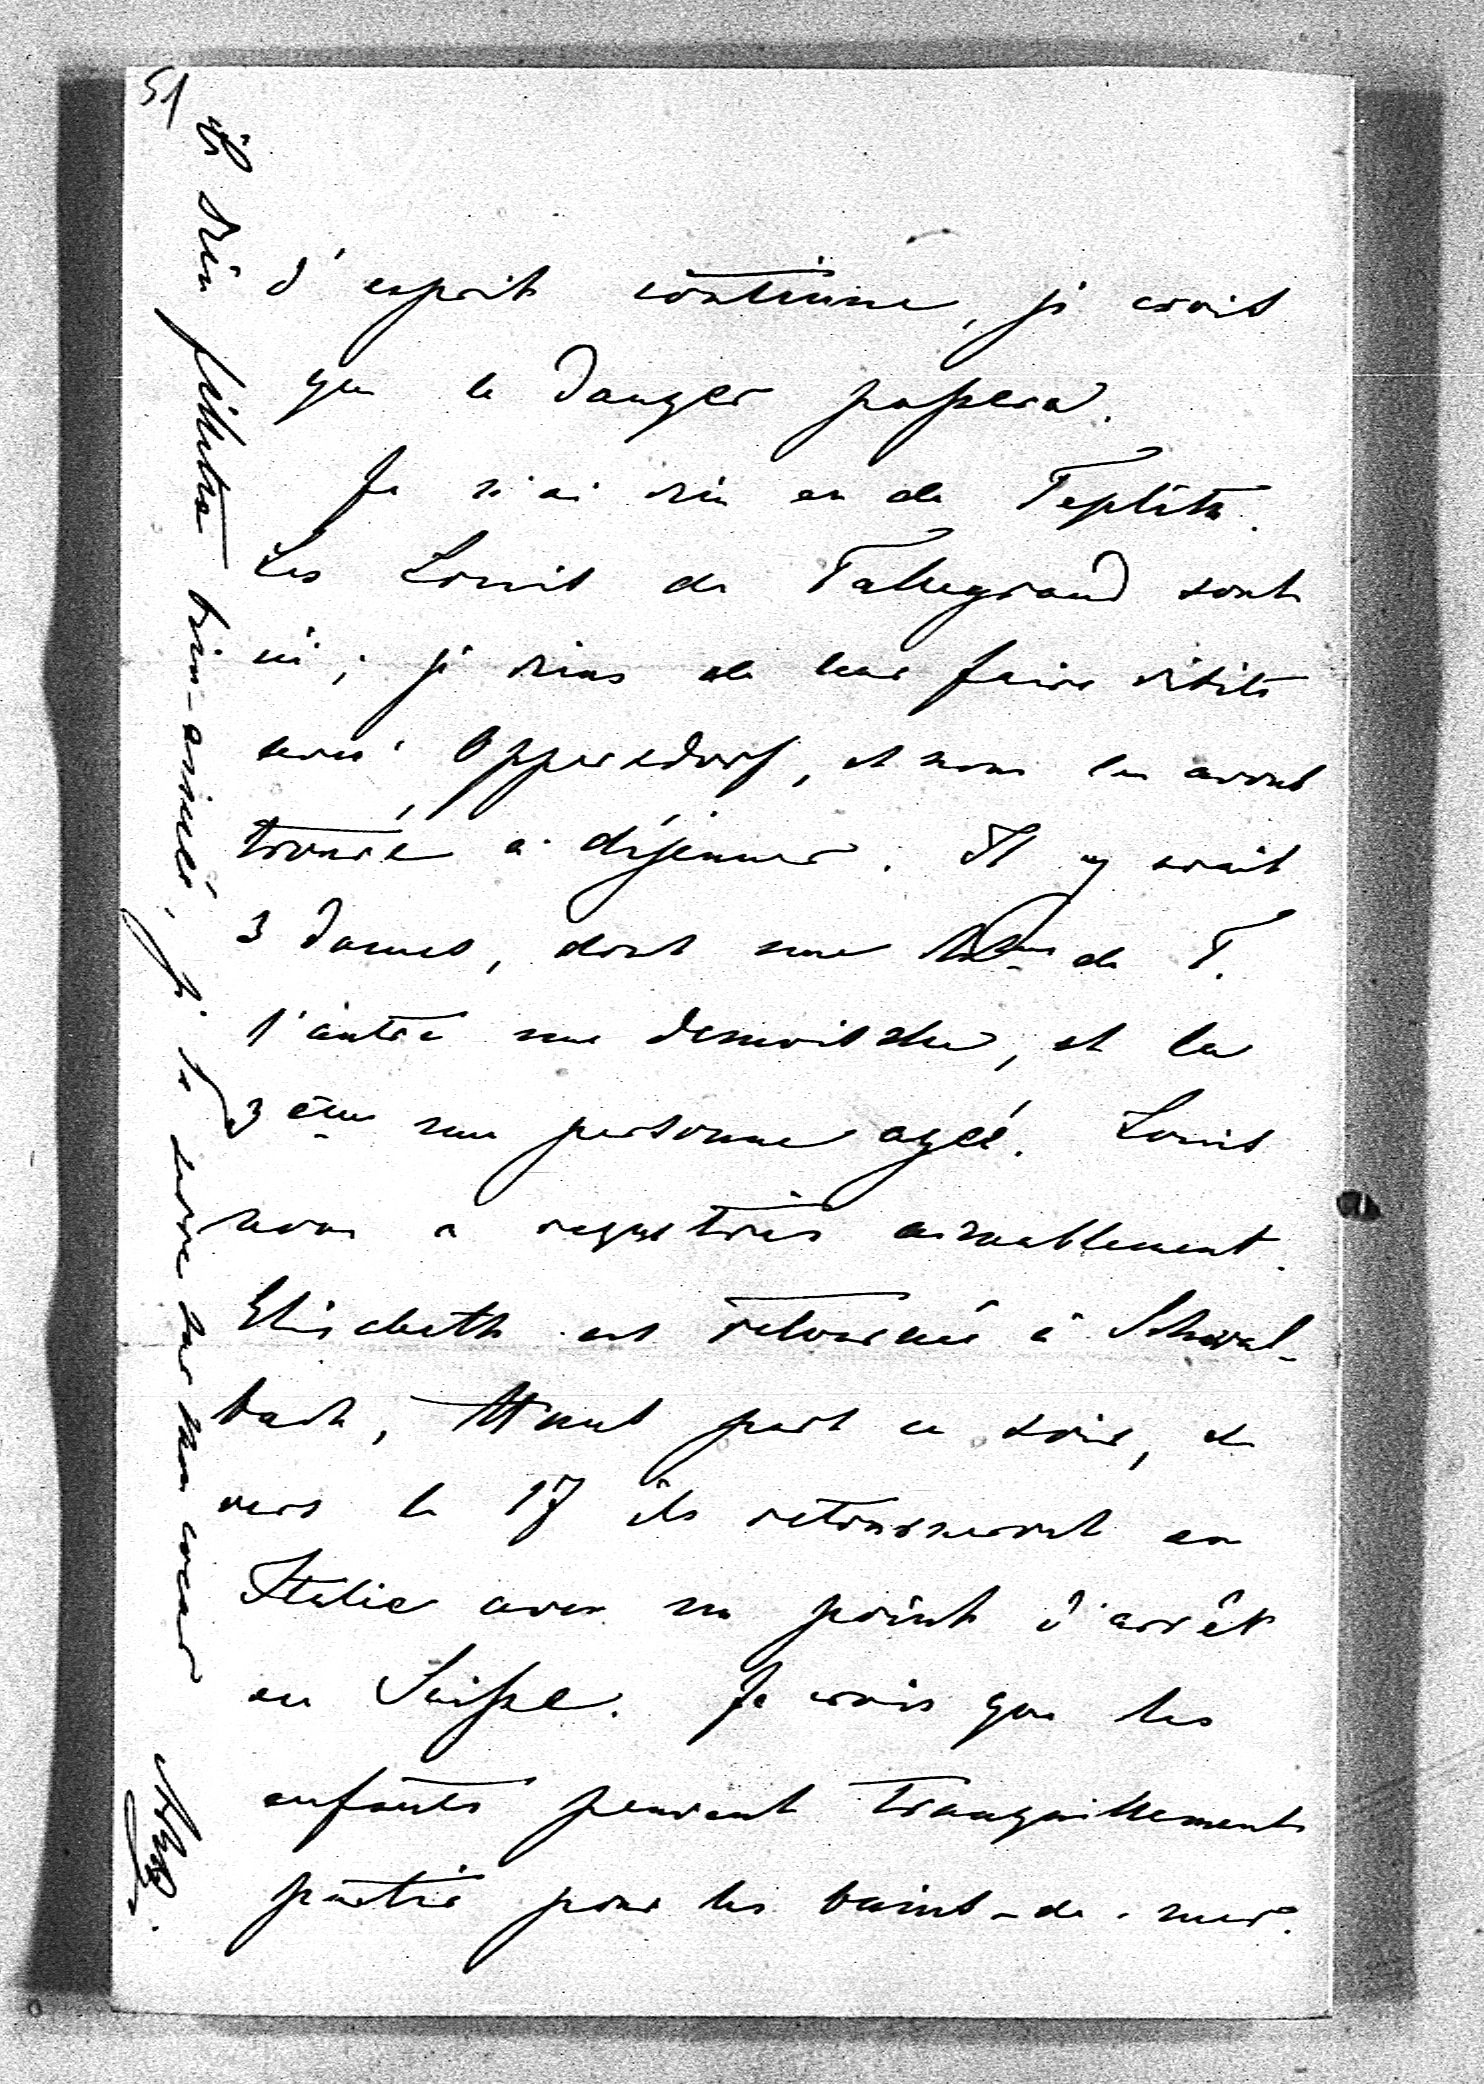 51
d'esprit continue, je crois
que le danger passera.
Je n'ai rien eu de Teplitz.
Les Louis de Talleyrand sont
ici; je viens de leur faire visite
avec Oppersdorf, et nous les avons
trouvé à déjeuner. Il y avait
3 dames, dont une Mme de T.
l'autre une demoiselle, et la
3ème une personne agée. Louis
nous a reçus très aimablement.
Elisabeth est retournée à Schwal-
bach, part ce soir, et
vers le 17 ils retourneront en
Italie avec un point d'arrêt
en Suisse. Je crois que les
enfants peuvent tranquillement
partir pour les bains-de-mer.
bien-aimée, je te serre sur mon coeur